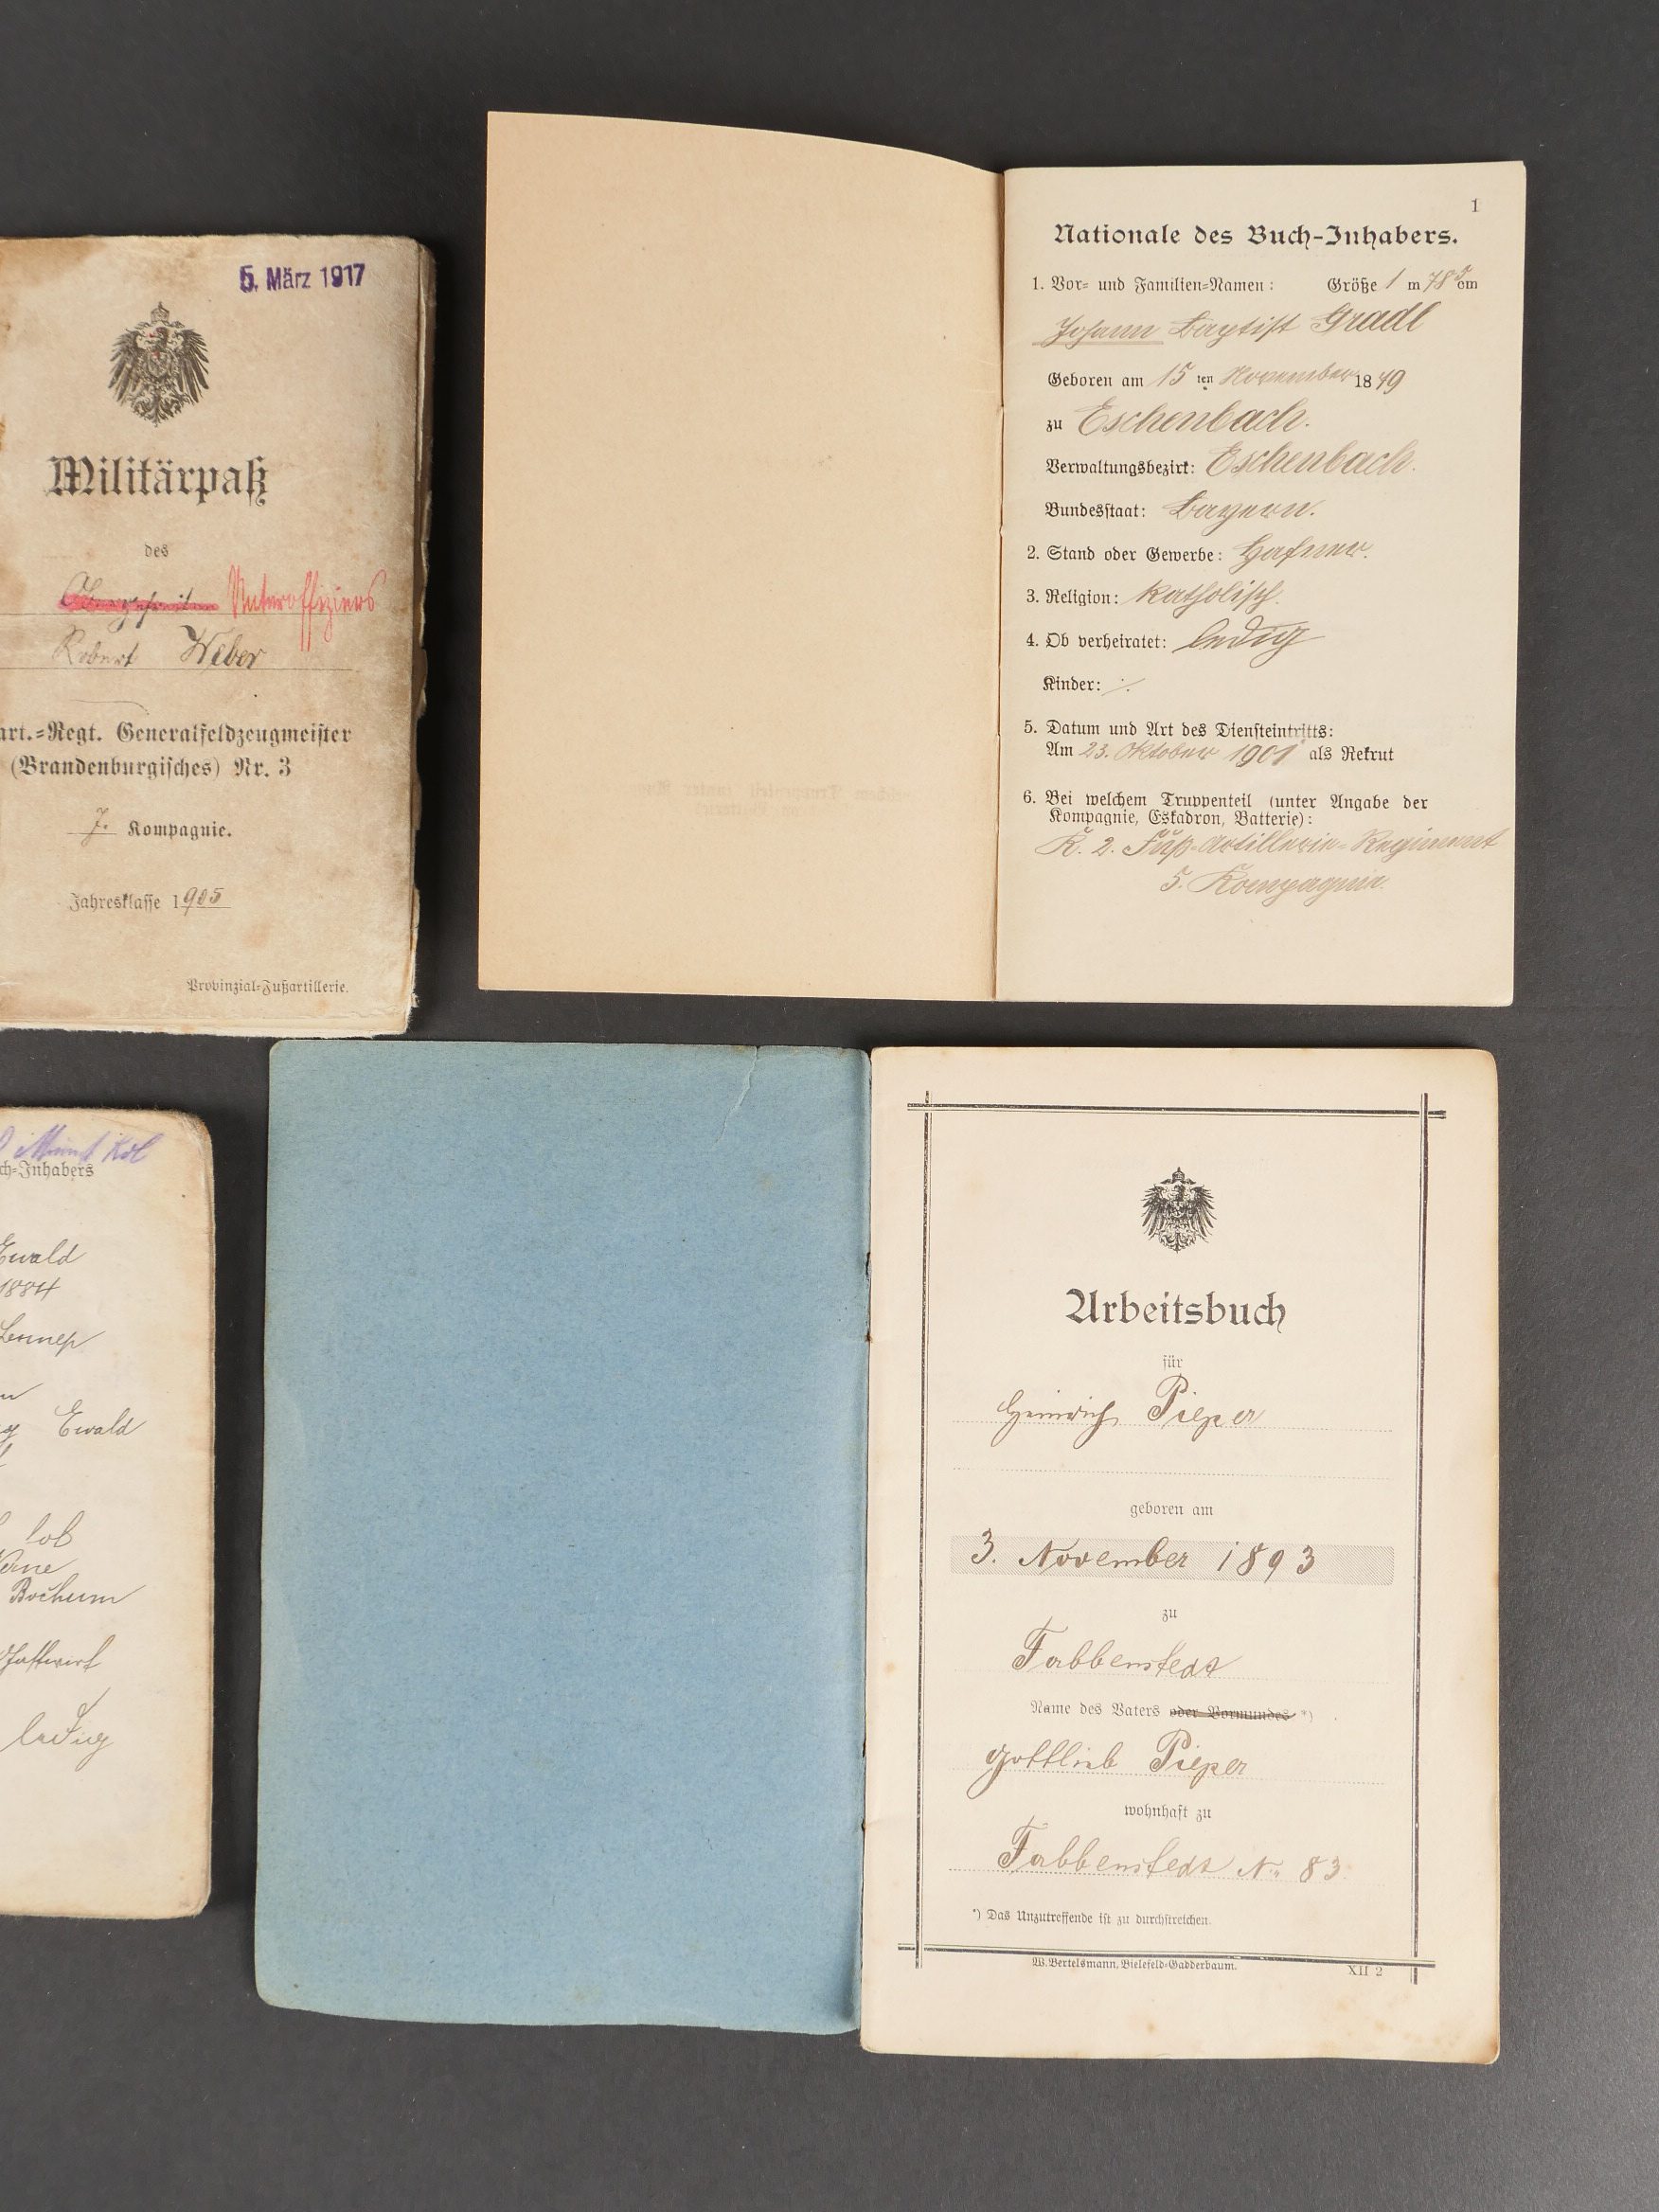 5. März 1917
Militärpaß
des
Obergefreiten Unteroffiziers
Robert Weber
art.=Regt. Generalfeldzeugmeister
(Brandenburgisches) Nr. 3
7. Kompagnie.
Jahresklasse 1905
Provinzial=Fußartillerie.
1
Nationale des Buch-Inhabers.
1. Vor= und Familien=Namen: Größe 1 m 78 5 cm
Johann Baptist Gradl
Geboren am 15 ten November 18
zu Eschenbach.
Verwaltungsbezirk: Eschenbach.
Bundesstaat: Bayern.
2. Stand oder Gewerbe: Hafner.
3. Religion: katholisch.
4. Ob verheiratet: ledig
Kinder: ·/.
5. Datum und Art des Diensteintritts:
Am 23. Oktober 1901 als Rekrut
6. Bei welchem Truppenteil (unter Angabe der
Kompagnie, Eskadron, Batterie):
K. 2. Fuß-Artillerie-Regiment
5. Kompagnie.
ch=Inhabers
Ewald
1884
Lennep
Ewald
Bochum
ledig
Arbeitsbuch
für
Heinrich Pieper
geboren am
3. November 1893
zu
Fabbenstedt
Name des Vaters oder Vormundes *)
Gottlieb Pieper
wohnhaft zu
Fabbenstedt No. 83.
*) Das Unzutreffende ist zu durchstreichen.
W. Bertelsmann, Bielefeld=Gadderbaum.
XII 2